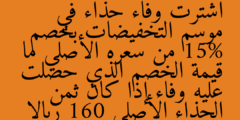 اشترت وفاء حذاء في
موسم التخفيضات بخصم
15% من سعره الأصلي لما
قيمة الخصم الذي حصلت
عليه وفاء إذا كان ثمن
الحذاء الأصلي 160 ريالا